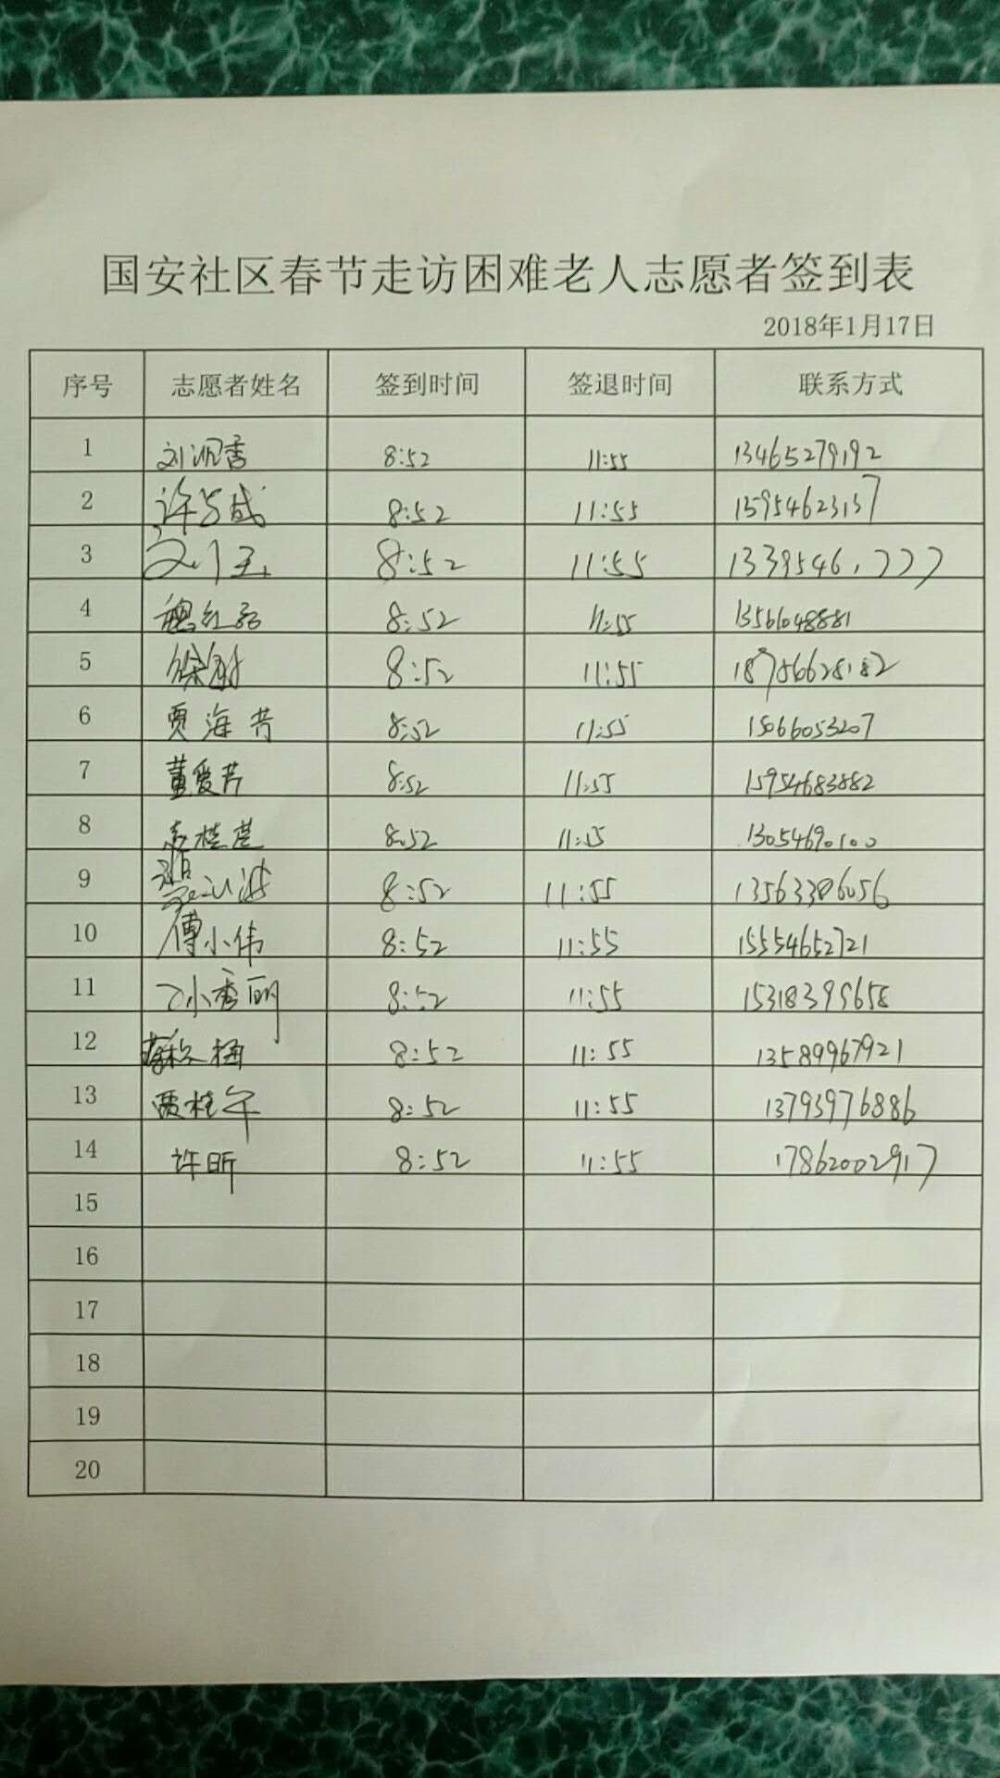 国安社区春节走访困难老人志愿者签到表
2018年1月17日
序号 志愿者姓名 签到时间 签退时间 联系方式
1 刘润香 8:52 11:55 13465279192
2 许与成 8:52 11:55 15954623137
3 8:52 11:55
4 魏红 8:52 11:55 13561048881
5 徐 8:52 11:55 18786628182
6 贾海芳 8:52 11:55 15066053207
7 董爱芳 8:52 11:55 15954683882
8 桂芝 8:52 11:55 13054690100
9 8:52 11:55 13563386056
10 傅小伟 8:52 11:55 15554652721
11 孙秀丽 8:52 11:55 15318395658
12 8:52 11:55 13589967921
13 贾桂午 8:52 11:55 13793976886
14 许昕 8:52 11:55 17862002917
15
16
17
18
19
20